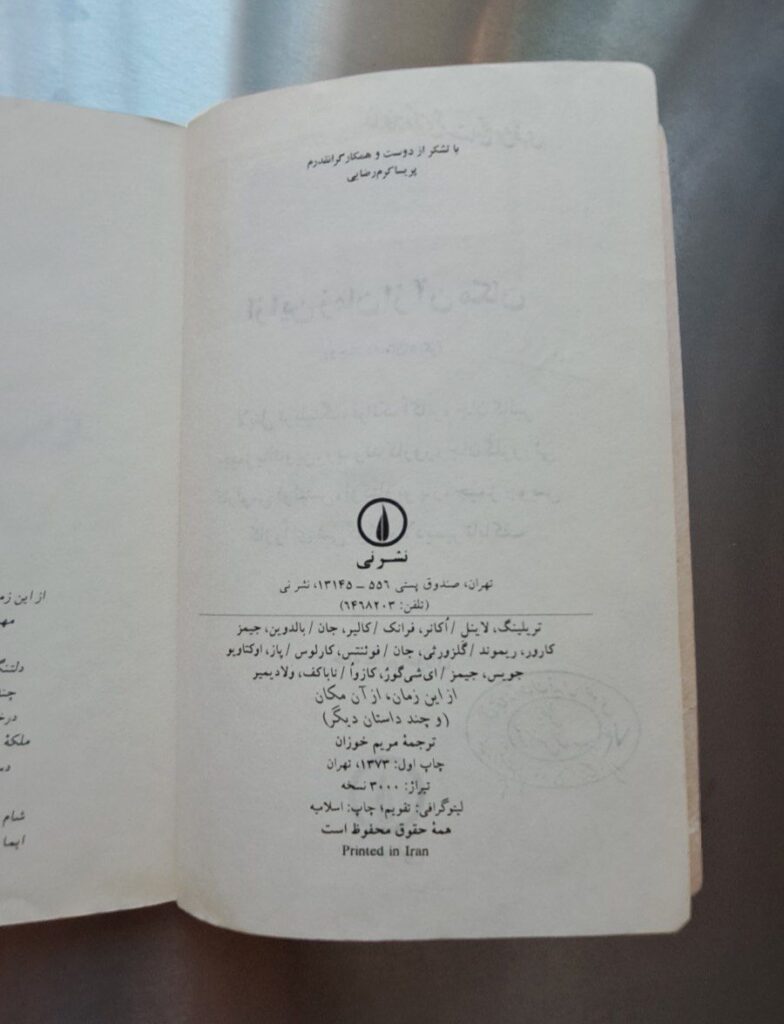 با تشکر از دوست و همکار گرانقدرم
پریسا کرم‌رضایی
نشر نی
تهران، صندوق پستی ۵۵۶ – ۱۳۱۴۵، نشر نی
(تلفن: ۶۴۶۸۲۰۳)
تریلینگ، لاینل / اُکانر، فرانک / کالیر، جان / بالدوین، جیمز
کارور، ریموند / گلزورثی، جان / فوئنتس، کارلوس / پاز، اوکتاویو
جویس، جیمز / ای‌شی‌گورُ، کازواُ / ناباکف، ولادیمیر
از این زمان، از آن مکان
(و چند داستان دیگر)
ترجمهٔ مریم خوزان
چاپ اول: ۱۳۷۳، تهران
تیراژ: ۳۰۰۰ نسخه
لیتوگرافی: تقویم؛ چاپ: اسلامیه
همهٔ حقوق محفوظ است
Printed in Iran
از این
دلتنگ
ملکهٔ
شام
ایما